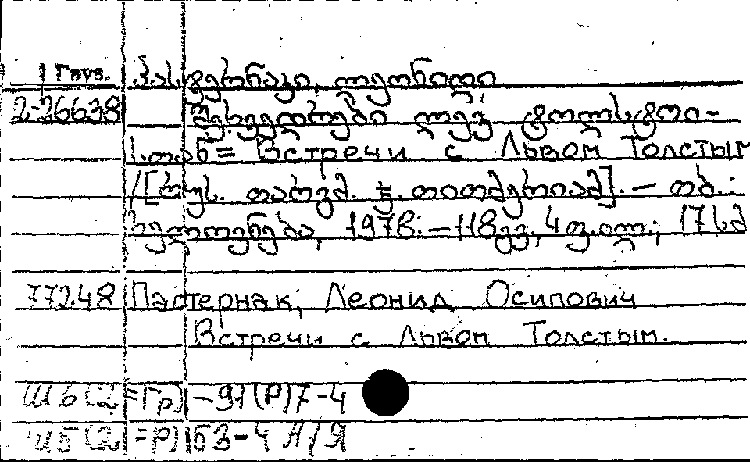 Груз. პასტერნაკი, ლეონიდი
2-26638 შეხვედრები ლევ ტოლსტოი-
სთან = Встречи с Львом Толстым
/[რუს. თარგმ. ჯ. თითმერიამ]. — თბ.:
ხელოვნება, 1978. — 118გვ, 4 ფ.ილ.; 17 სმ
77248 Пастернак, Леонид Осипович
Встречи с Львом Толстым.
Ш6(2=Гр) -91(Р)7-4
Ш5(2=Р)153-4 А/Я